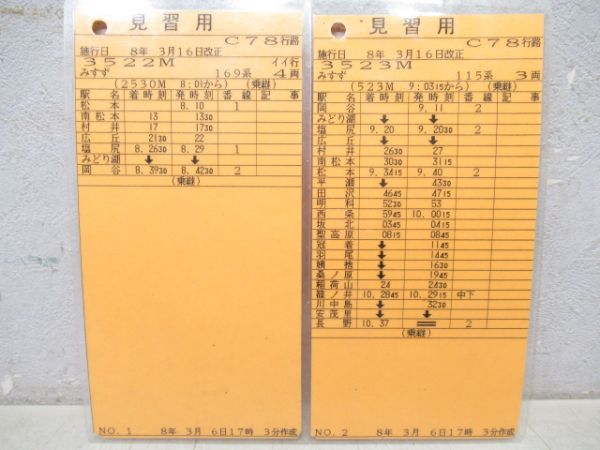 見習用
C78行路
施行日 8年 3月16日改正
3522M イイ行
みすず 169系 4両
(2530M 8:01から) (乗継)
駅名 着時刻 発時刻 番線 記事
松本 8.10 1
南松本 13 1330
村井 17 1730
広丘 2130 22
塩尻 8.2630 8.29 1
みどり湖 ↓ ↓
岡谷 8.3930 8.4230 2
(乗継)
NO. 1 8年 3月 6日17時 3分作成
見習用
C78行路
施行日 8年 3月16日改正
3523M
みすず 115系 3両
(523M 9:0315から) (乗継)
駅名 着時刻 発時刻 番線 記事
岡谷 9.11 2
みどり湖 ↓ ↓
塩尻 9.20 9.2030 2
広丘 ↓ ↓
村井 2630 27
南松本 3030 3115
松本 9.3415 9.40 2
平瀬 ↓ 4330
田沢 4645 4715
明科 5230 53
西条 5945 10.0015
坂北 0345 0415
聖高原 0815 0845
冠着 ↓ 1145
羽尾 ↓ 1445
姨捨 ↓ 1630
桑ノ原 ↓ 1945
稲荷山 24 2430
篠ノ井 10.2845 10.2915 中下
川中島 ↓ 3230
安茂里 ↓ ↓
長野 10.37 2
(乗継)
NO. 2 8年 3月 6日17時 3分作成